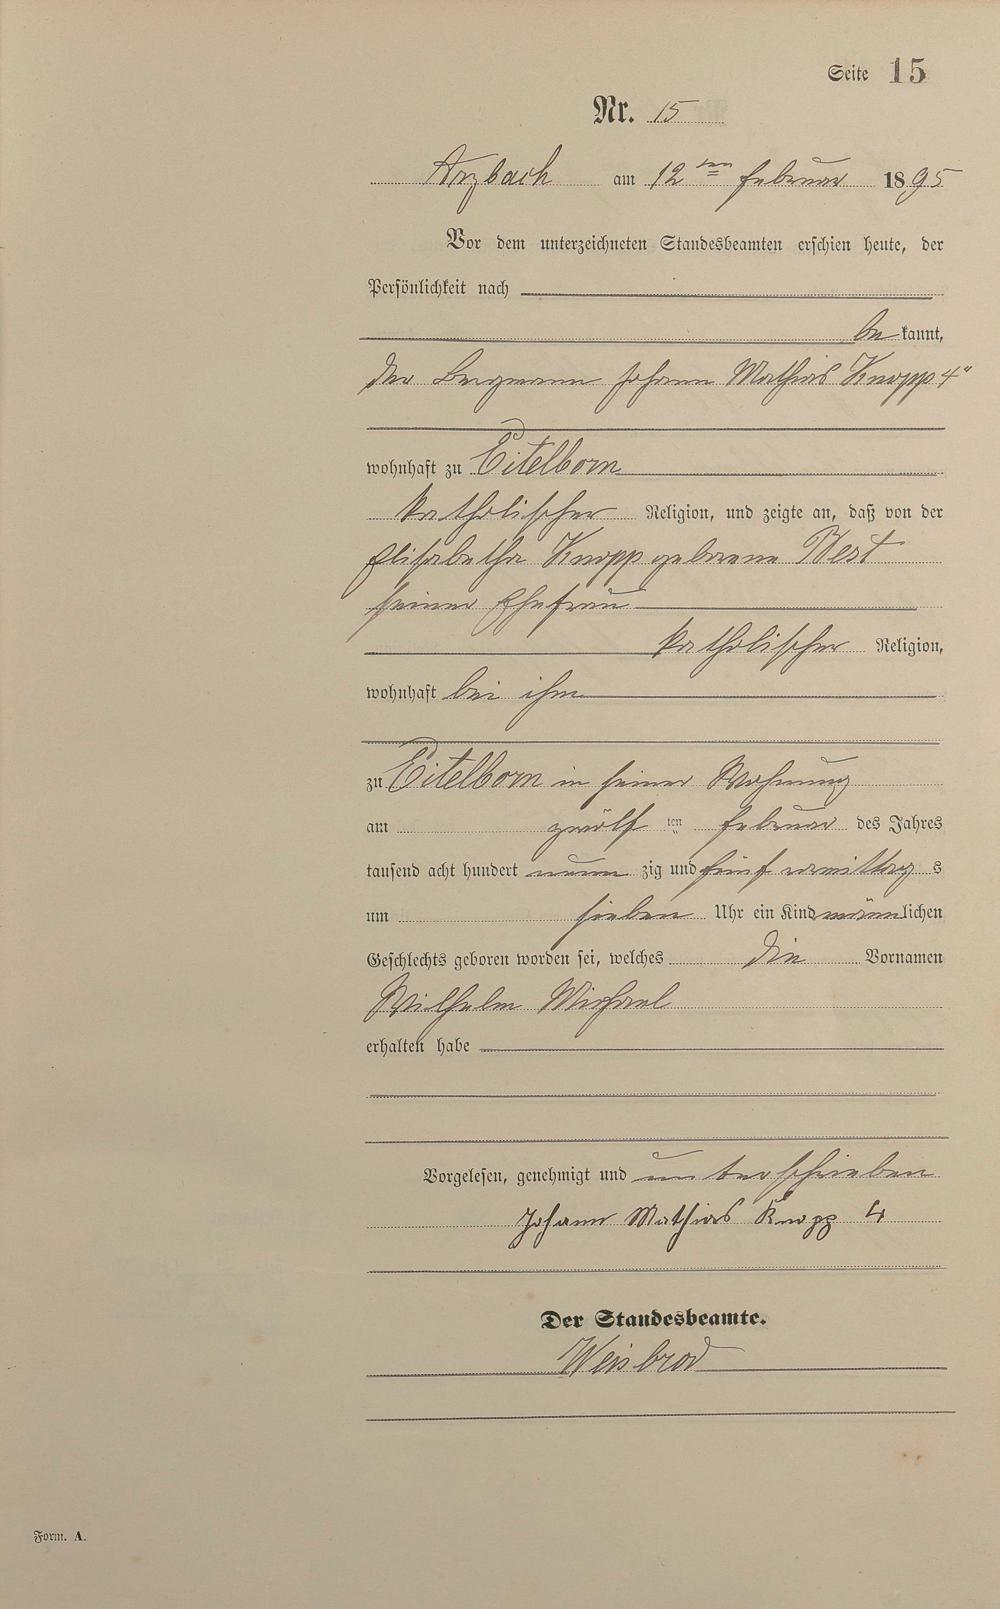 Seite 15
Nr. 15
Arzbach am 12ten Februar 1895
Vor dem unterzeichneten Standesbeamten erschien heute, der
Persönlichkeit nach
be kannt,
der Bergmann Johann Mathias Knopp 4"
wohnhaft zu Eitelborn
katholischer Religion, und zeigte an, daß von der
Elisabetha Knopp geborene Best
seiner Ehefrau
katholischer Religion,
wohnhaft bei ihm
zu Eitelborn in seiner Wohnung
am zwölf ten Februar des Jahres
tausend acht hundert neun zig und fünf vormittag s
um sieben Uhr ein Kind männlichen
Geschlechts geboren worden sei, welches die Vornamen
Wilhelm Michael
erhalten habe
Vorgelesen, genehmigt und unterschrieben
Johann Mathias Knopp 4
Der Standesbeamte.
Weisbrod
Form. A.